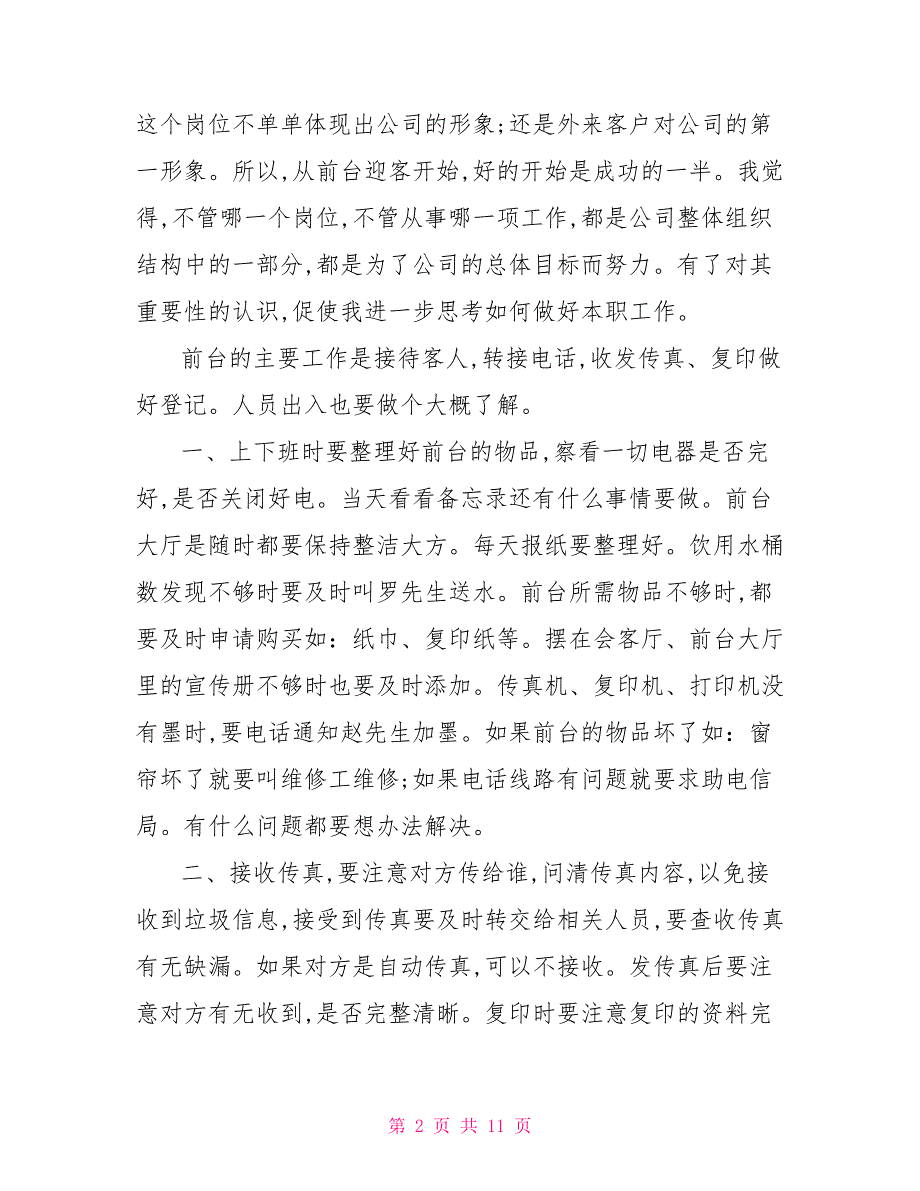 这个岗位不单单体现出公司的形象;还是外来客户对公司的第
一形象。所以,从前台迎客开始,好的开始是成功的一半。我觉
得,不管哪一个岗位,不管从事哪一项工作,都是公司整体组织
结构中的一部分,都是为了公司的总体目标而努力。有了对其
重要性的认识,促使我进一步思考如何做好本职工作。
前台的主要工作是接待客人,转接电话,收发传真、复印做
好登记。人员出入也要做个大概了解。
一、上下班时要整理好前台的物品,察看一切电器是否完
好,是否关闭好电。当天看看备忘录还有什么事情要做。前台
大厅是随时都要保持整洁大方。每天报纸要整理好。饮用水桶
数发现不够时要及时叫罗先生送水。前台所需物品不够时,都
要及时申请购买如：纸巾、复印纸等。摆在会客厅、前台大厅
里的宣传册不够时也要及时添加。传真机、复印机、打印机没
有墨时,要电话通知赵先生加墨。如果前台的物品坏了如：窗
帘坏了就要叫维修工维修;如果电话线路有问题就要求助电信
局。有什么问题都要想办法解决。
二、接收传真,要注意对方传给谁,问清传真内容,以免接
收到垃圾信息,接受到传真要及时转交给相关人员,要查收传真
有无缺漏。如果对方是自动传真,可以不接收。发传真后要注
意对方有无收到,是否完整清晰。复印时要注意复印的资料完
第 2 页 共 11 页